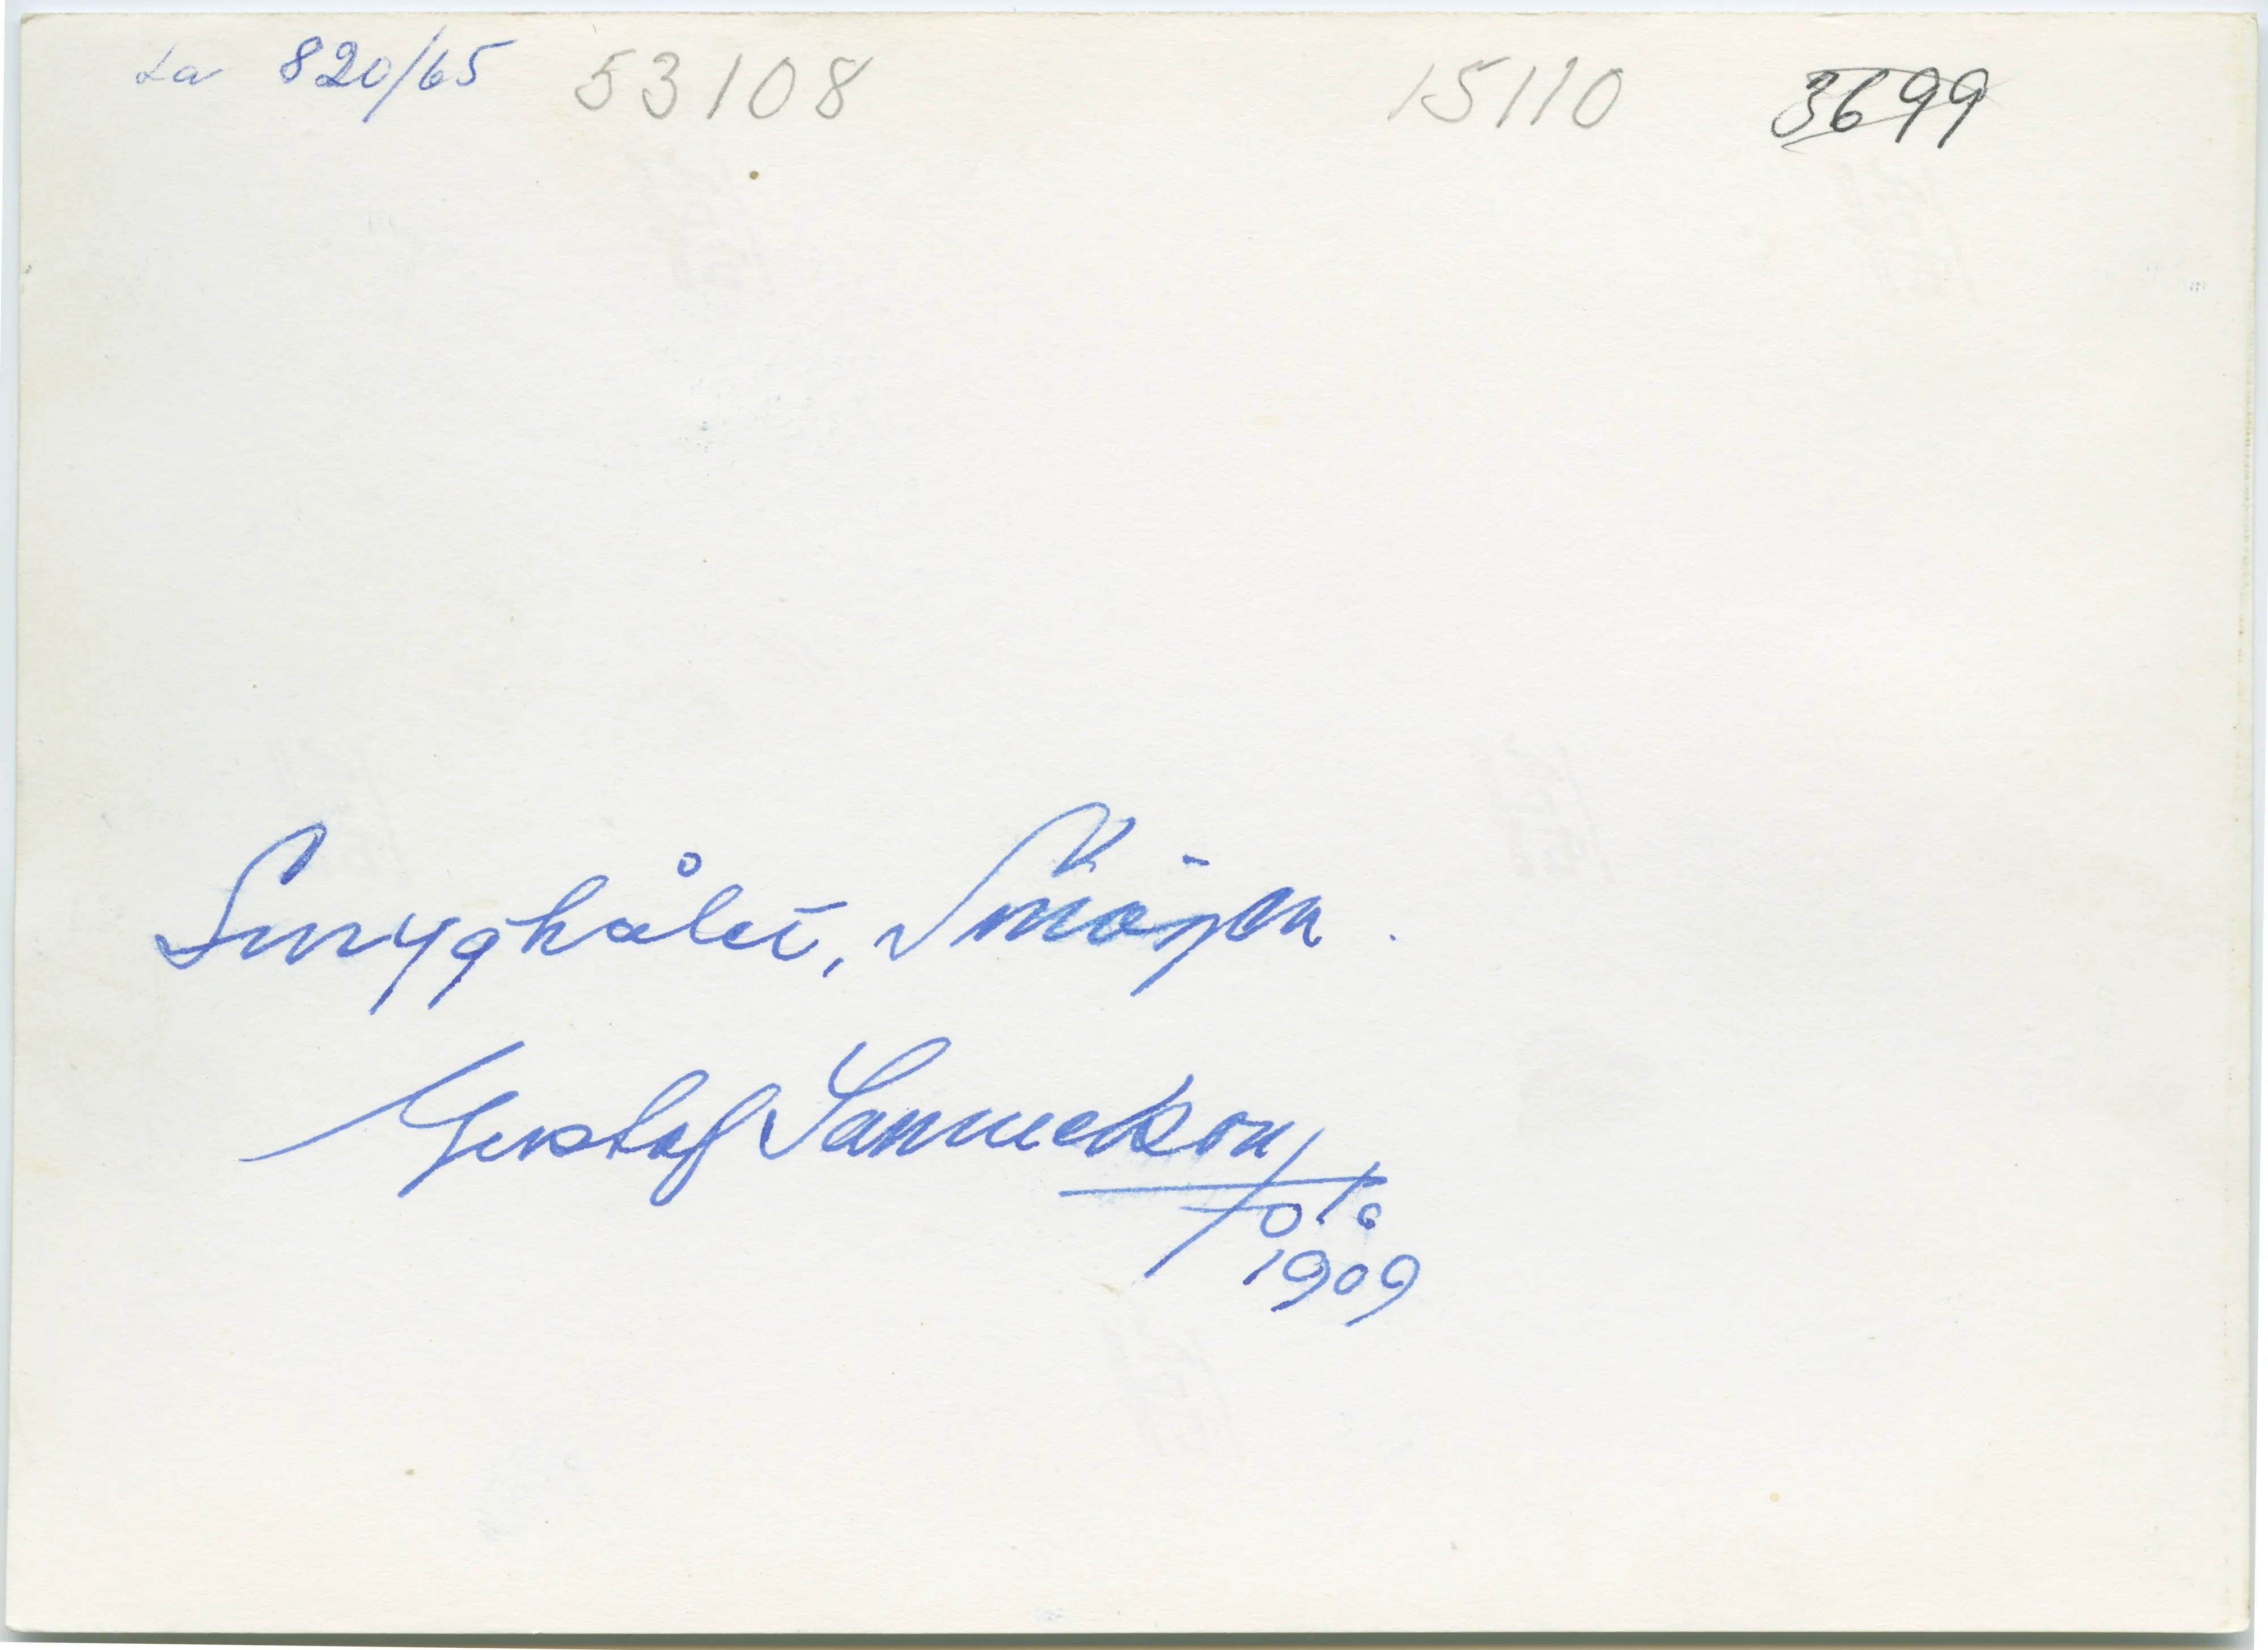 La 820/65 53108 15110 3699
Smyghålet, Smögen.
Gustaf Samuelson
Foto
1909